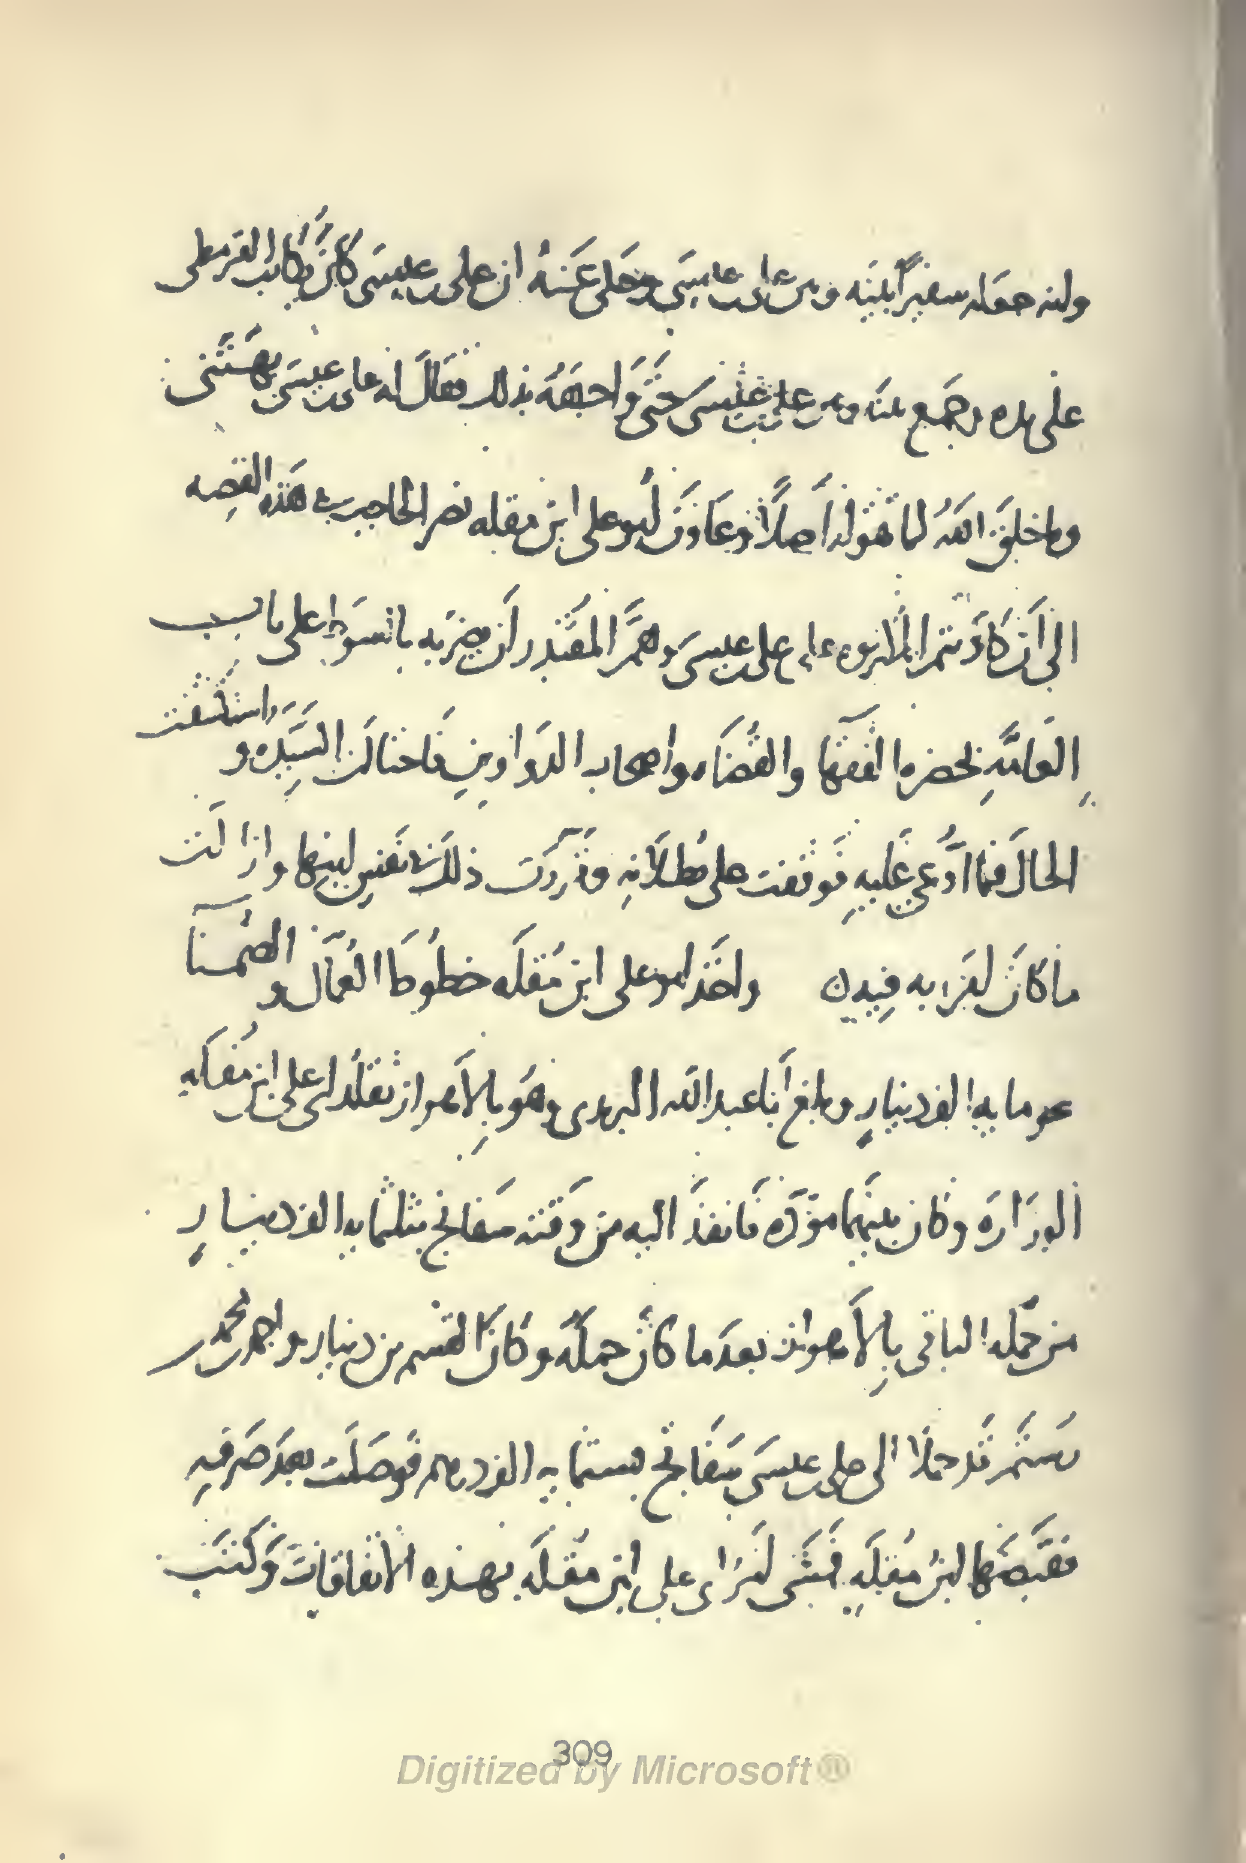 وانه جعله سفيرًا بينه وبين علي بن عيسى وحكى عنه ان علي بن عيسى كان يكاتب القرمطي
على يده وجمع بينه وبين علي بن عيسى حتى واجهه بذلك فقال له علي بن عيسى بهتني
وما خلق الله لما تقوله أصلًا وعاون أبو علي ابن مقله نصر الحاجب في هذه القصه
الى أن كاد يتم المكروه على علي بن عيسى وهمّ المقتدر أن يضربه بالسوط على باب
العامّه بحضره الفقها والقضاه واصحاب الدواوين فاحتالت السيّده و استكشفت
الحال فيما ادّعي عليه فوقفت على بطلانه وقررت ذلك في نفس ابنها وازالت
ما كان نواه به فيه واخذ ابو علي ابن مقله خطوط العمّال و الضمنآ
بمايه الف دينارٍ وبلغ أبا عبدالله البريدى وهو بالأهواز تقلّد ابى علي ابن مقله
الوزاره وكان بينهما مودّه فانفذ اليه من وقته سفاتج بثلثمايه الف دينارٍ
من جمله الباقى بالأهواز بعد ما كان حمله وكان القسم بن دينار واحمد بن محمد بن
رستم قد حملا الى علي بن عيسى سفاتج بستمايه الف درهم فوصلت بعد صرفه
فقبضها ابن مقله فمشى امر ابى علي ابن مقله بهذه الاتفاقات وكتب
309
Digitized by Microsoft ®